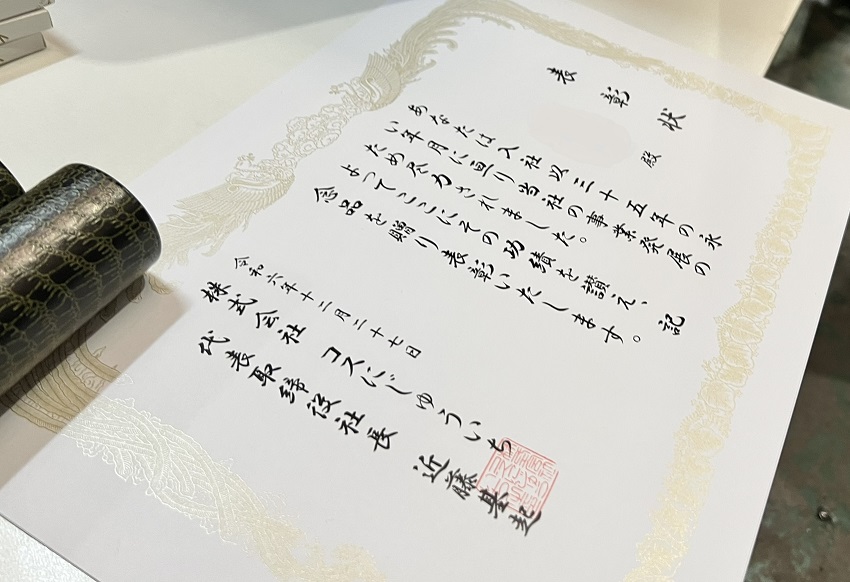 表彰状
殿
あなたは入社以三十五年の永
い年月に亘り当社の事業発展の
ため尽力されました。
よってここにその功績を讃え、記
念品を贈り表彰いたします。
令和六年十二月二十七日
株式会社 コスにじゅういち
代表取締役社長 近藤基起